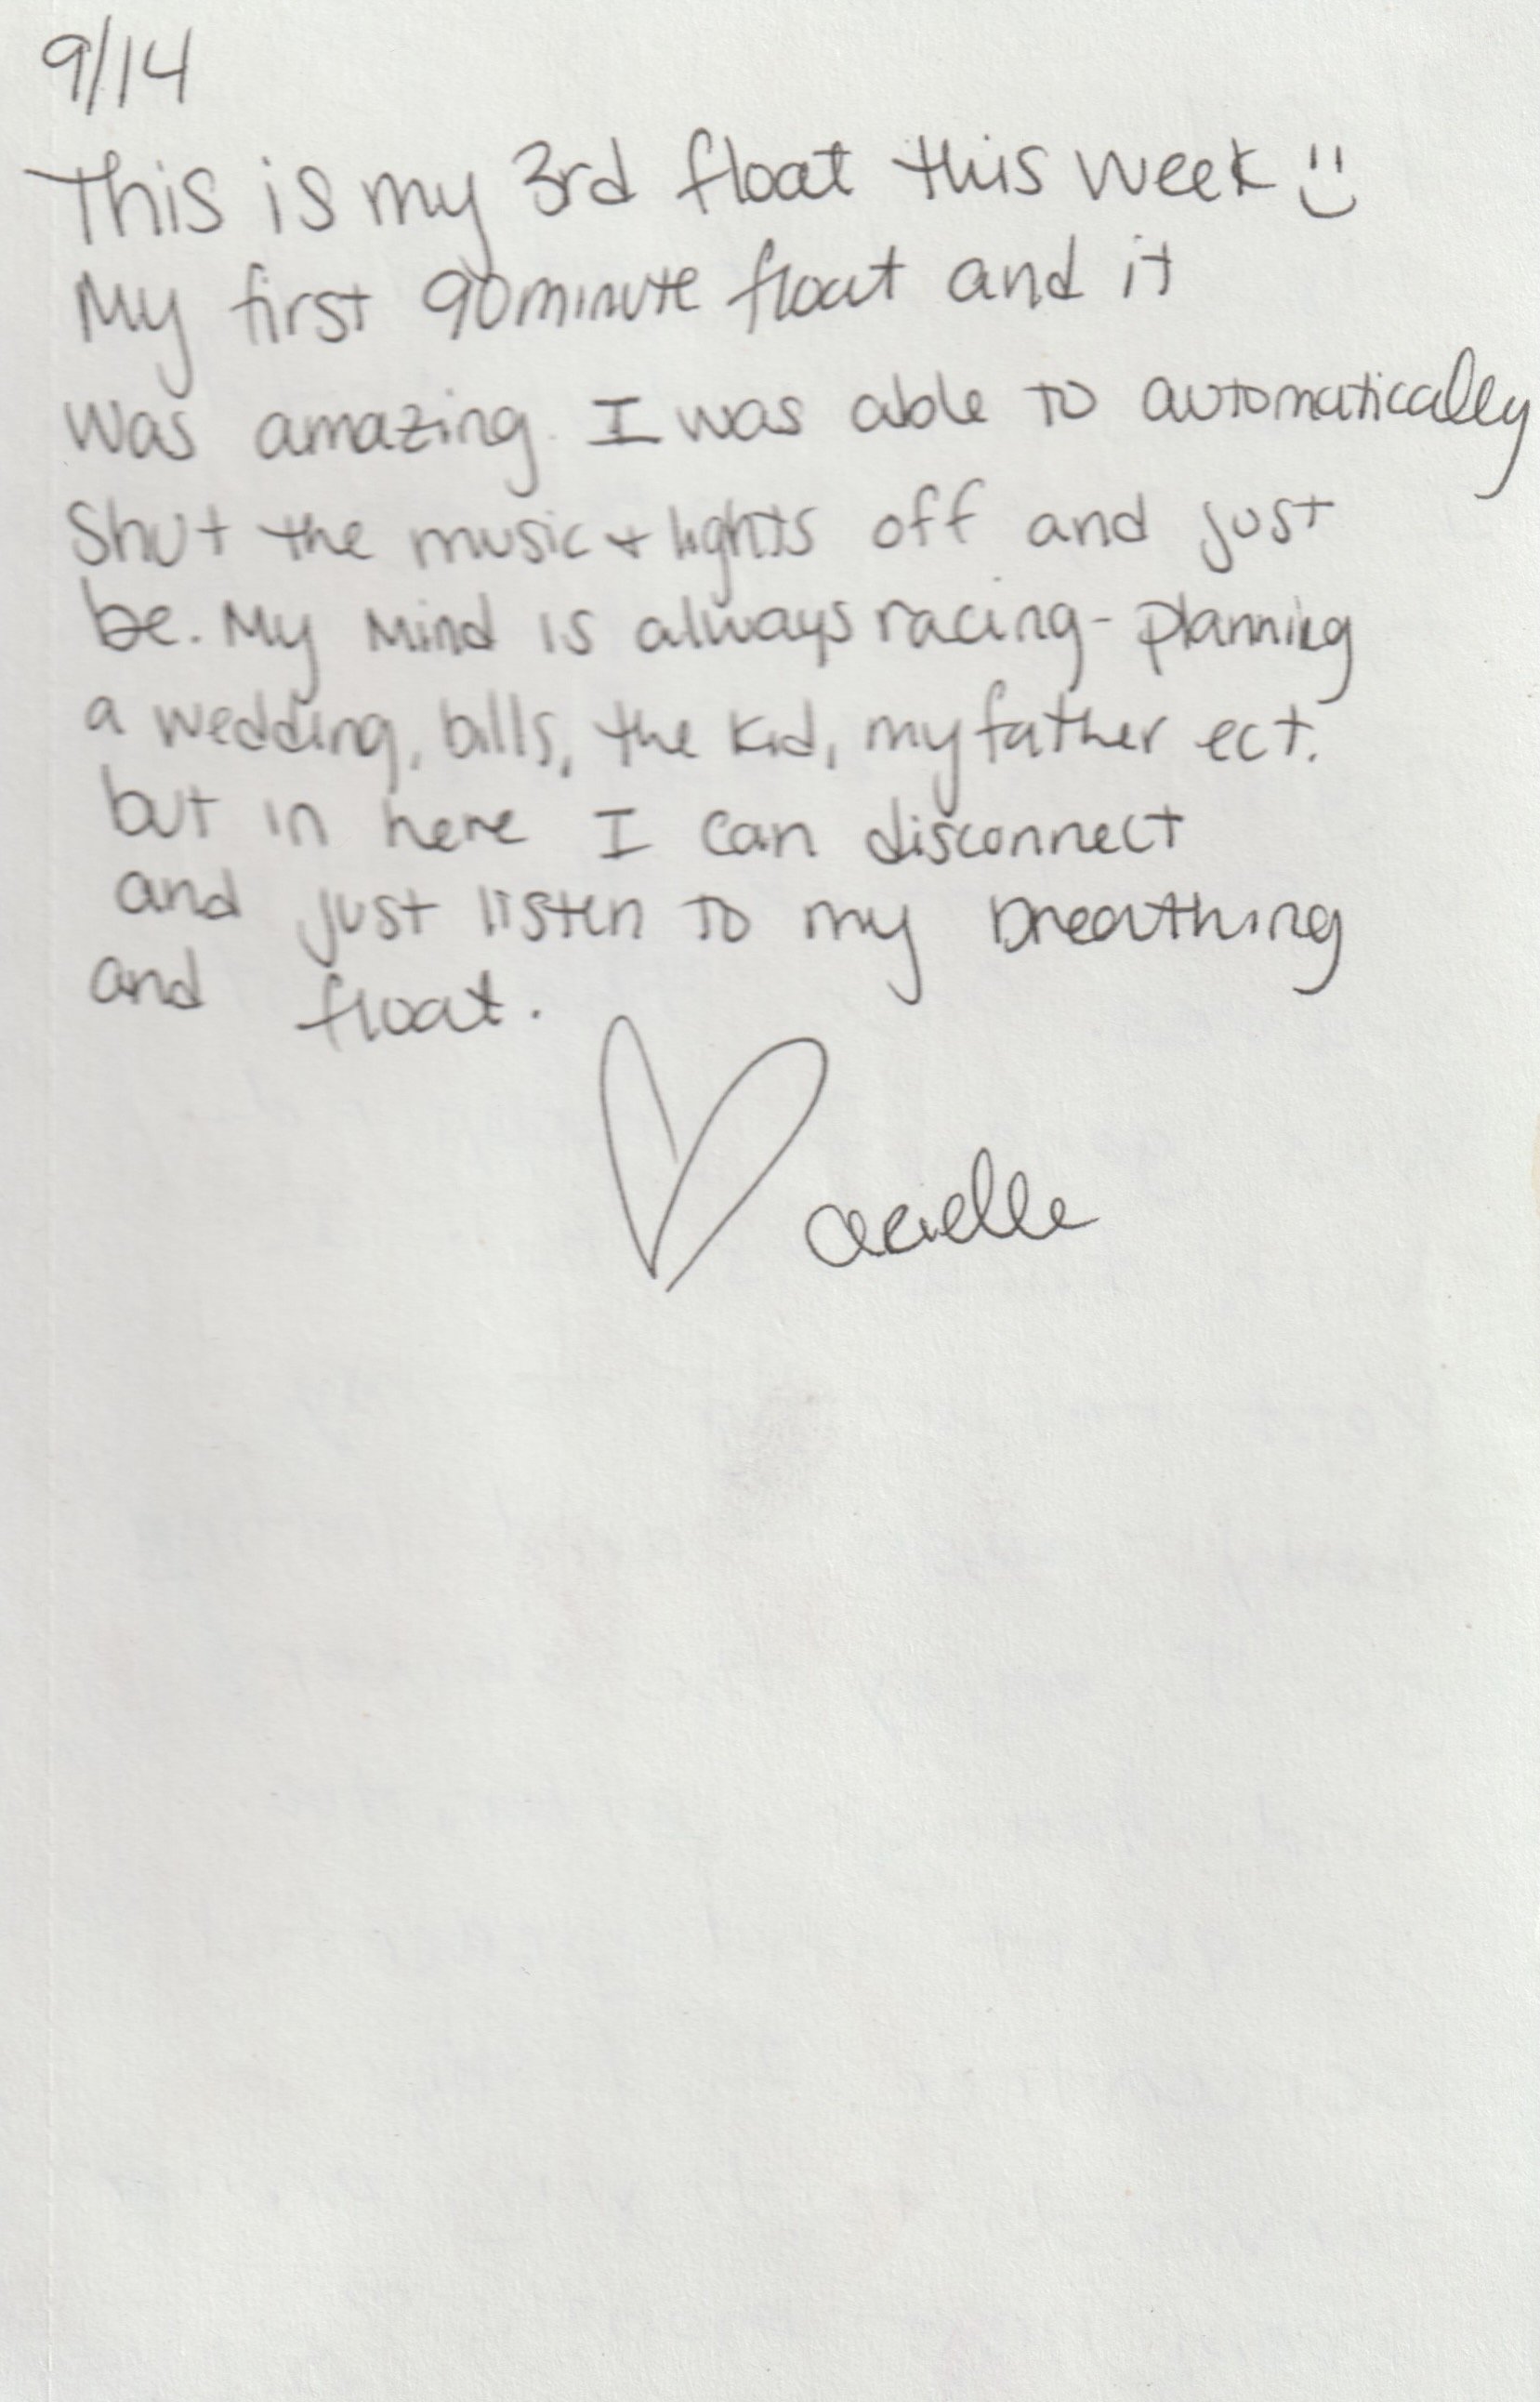 9/14
This is my 3rd float this week :)
My first 90minute float and it
was amazing. I was able to automatically
Shut the music + lights off and just
be. My mind is always racing - planning
a wedding, bills, the kid, my father ect.
but in here I can disconnect
and just listen to my breathing
and float.